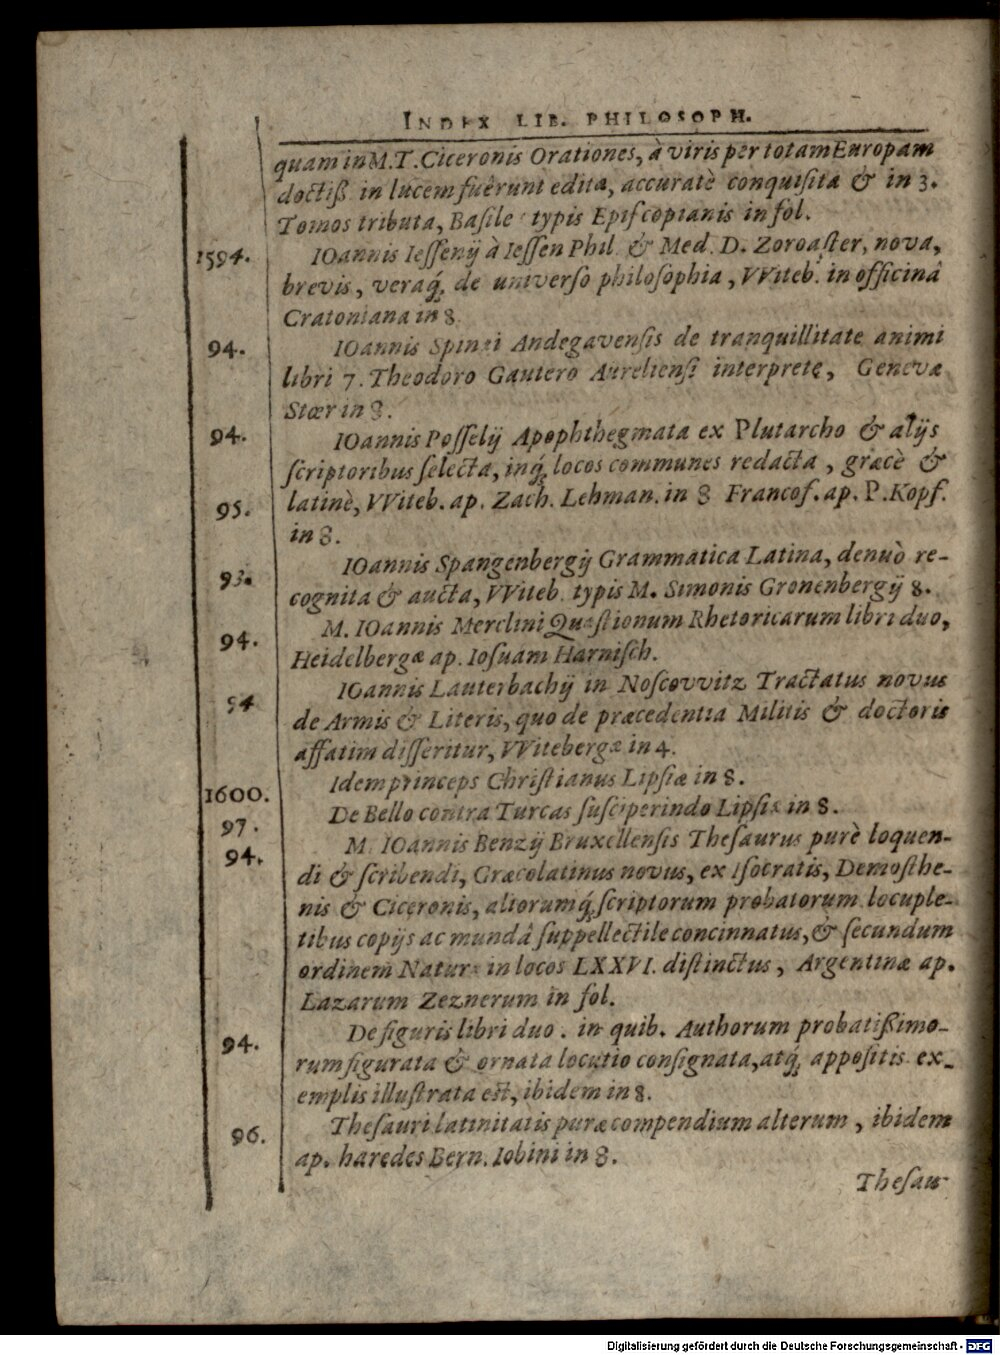 INDEX LIB. PHILOSOPH.
quam in M.T. Ciceronis Orationes, à viris per totam Europam
doctiß. in lucem fuêrunt edita, accuratè conquisita & in 3.
Tomos tributa, Basile typis Episcopianis in fol.
1594. IOannis Iessenij à Iessen Phil. & Med. D. Zoroaster, nova,
brevis, veraq́; de universo philosophia, VViteb. in officinâ
Cratoniana in 8.
94. IOannis Spinæi Andegavensis de tranquillitate animi
libri 7. Theodoro Gautero Aureliensi interprete, Genevæ
Stœr in 8.
94. IOannis Posselij Apophthegmata ex Plutarcho & alijs
scriptoribus selecta, inq́; locos communes redacta, græcè &
95. latinè, VViteb. ap. Zach. Lehman. in 8 Francof. ap. P. Kopf.
in 8.
93. IOannis Spangenbergij Grammatica Latina, denuò re-
cognita & aucta, VViteb. typis M. Simonis Gronenbergij 8.
94. M. IOannis Merclini Quæstionum Rhetoricarum libri duo,
Heidelbergæ ap. Iosuam Harnisch.
94 IOannis Lauterbachij in Noscovvitz Tractatus novus
de Armis & Literis, quo de præcedentia Militis & doctoris
affatim disseritur, VVitebergæ in 4.
1600. Idem princeps Christianus Lipsiæ in 8.
97. De Bello contra Turcas susciperindo Lipsiæ in 8.
94. M. IOannis Benzij Bruxellensis Thesaurus purè loquen-
di & scribendi, Græcolatinus novus, ex Isocratis, Demosthe-
nis & Ciceronis, aliorumq́; scriptorum probatorum locuple-
tibus copijs ac mundâ suppellectile concinnatus, & secundum
ordinem Naturæ in locos LXXVI. distinctus, Argentinæ ap.
Lazarum Zeznerum in fol.
94. De figuris libri duo. in quib. Authorum probatißimo-
rum figurata & ornata locutio consignata, atq́; appositis ex-
emplis illustrata est, ibidem in 8.
96. Thesauri latinitatis puræ compendium alterum, ibidem
ap. hæredes Bern. Iobini in 8.
Thesau-
Digitalisierung gefördert durch die Deutsche Forschungsgemeinschaft - DFG